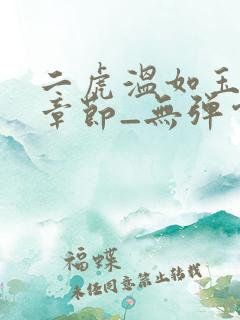 二虎温如玉
章节_无弹
福蝶
未经同意禁止转载